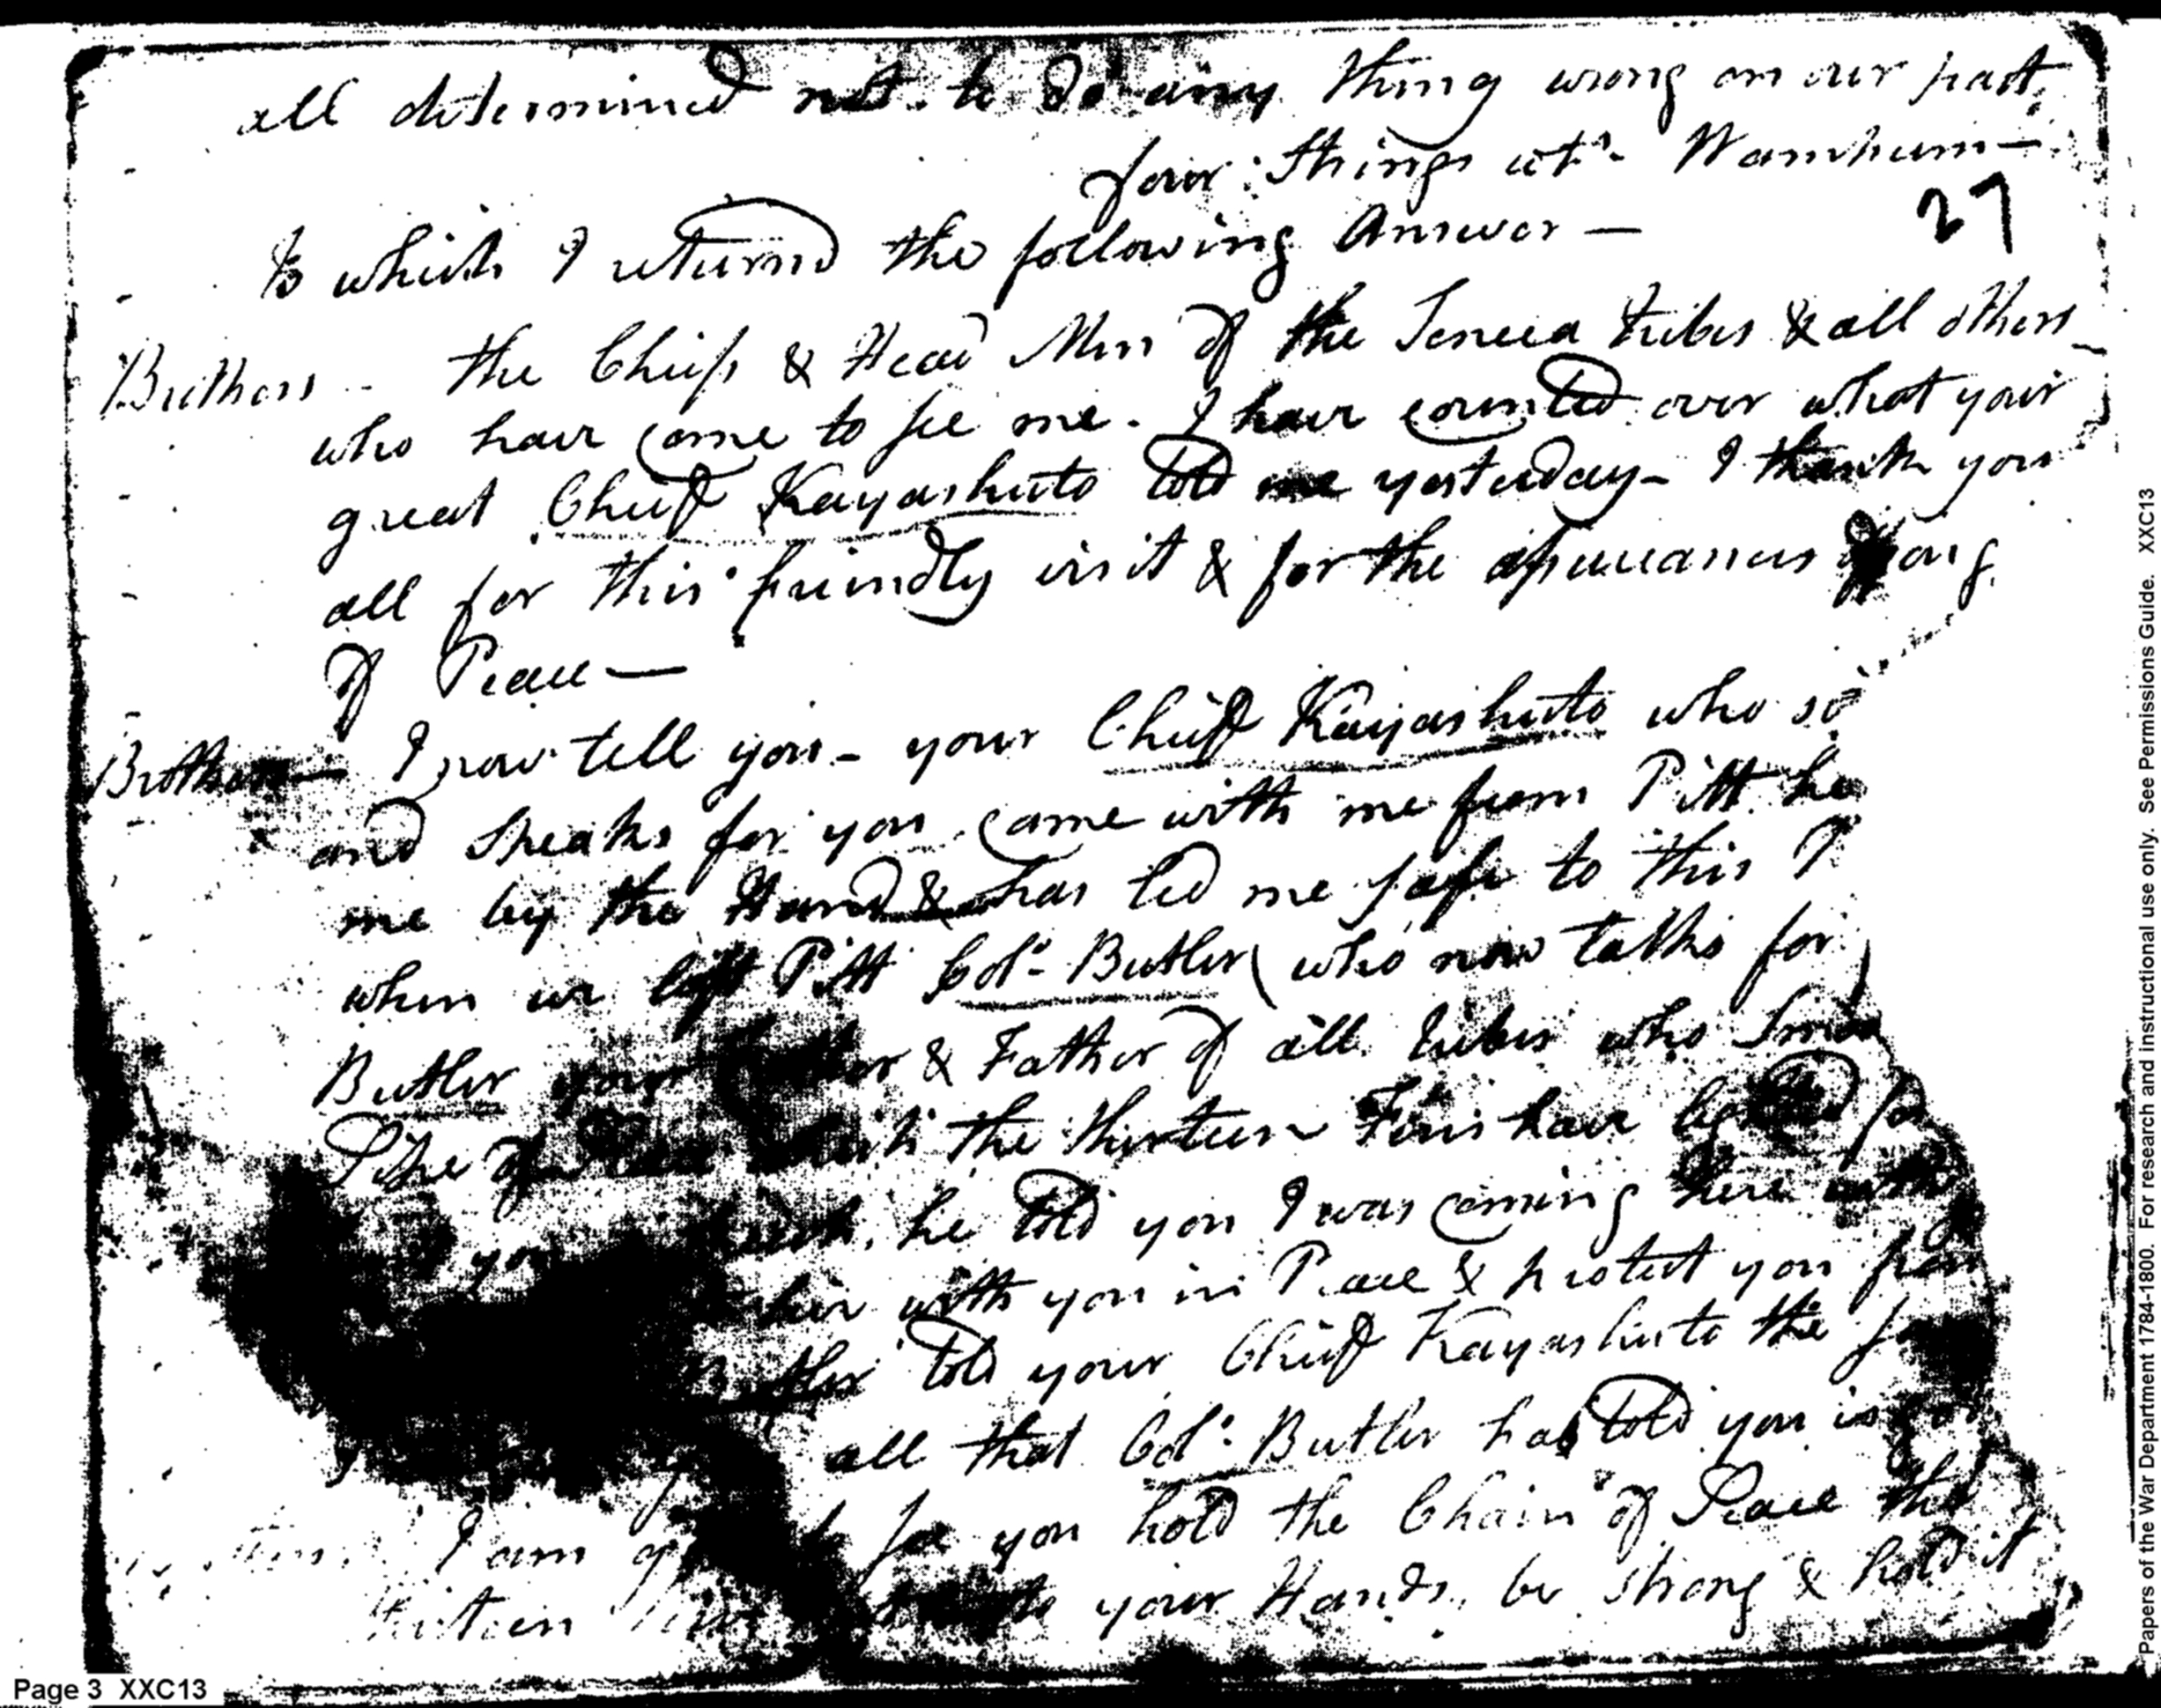 all determined not to do any thing wrong on our part,
four Strings wt. Wampum—
27
To which I returnd the following Answer —
Brothers - the Chiefs & Head Men of the Seneca tribes & all others
who have come to see me. I have counted over what your
great Chief Kayashuto told me yesterday - I thank you
all for this friendly visit & for the assurances of
of Peace —
Brothers — I now tell you - your Chief Kayashuto who so
and Speaks for you came with me from Pitt he
me by the Hand & has led me safe to this
when we left Pitt Colo. Butler (who now talks for
Butler your & Father of all tribes who
Pipe of the thirteen Fires have lighted
you he told you I was coming here with
with you in Peace & protect you from
Butler told your Chief Kayashuto the
all that Colo. Butler has told you is
I am to see you hold the Chain of Peace the
thirteen your Hands, be strong & hold it
Page 3 XXC13
Papers of the War Department 1784-1800. For research and instructional use only. See Permissions Guide. XXC13